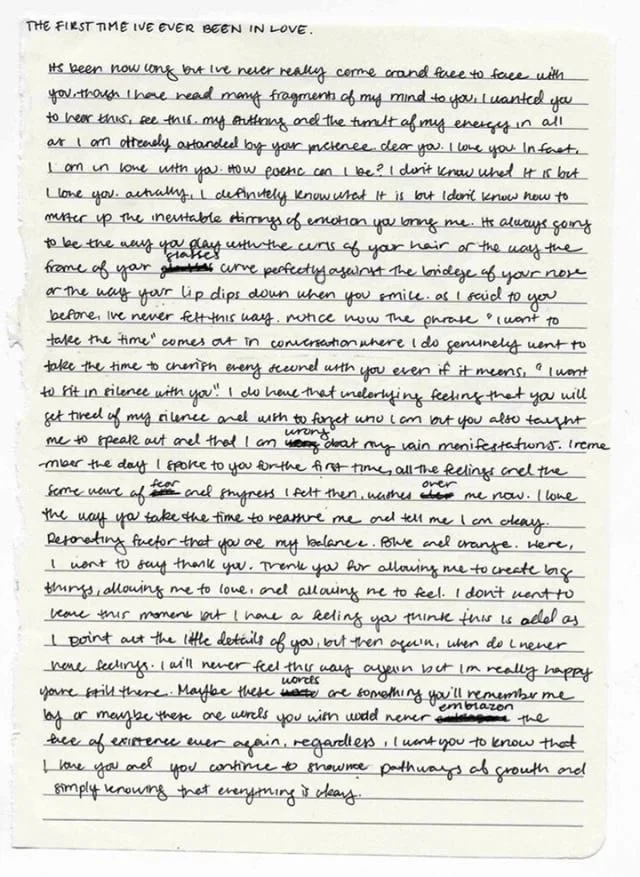 THE FIRST TIME IVE EVER BEEN IN LOVE.
Its been how long but Ive never really come around face to face with
you, though I have read many fragments of my mind to you, I wanted you
to hear this, see this. my stuttering and the tumult of my energy in all
as I am already astounded by your presence. dear you. I love you. In fact,
I am in love with you. How poetic can I be? I don't know what it is but
I love you. actually, I definitely know what it is but I don't know how to
muster up the inevitable stirrings of emotion you bring me. Its always going
to be the way you play with the curls of your hair or the way the
frame of your glasses curve perfectly against the bridge of your nose
or the way your lip dips down when you smile. as I said to you
before, ive never felt this way. notice how the phrase "I want to
take the time" comes out in conversation where I do genuinely want to
take the time to cherish every second with you even if it means, "I want
to sit in silence with you." I do have that underlying feeling that you will
get tired of my silence and wish to forget who I am but you also taught
me to speak out and that I am wrong about my vain manifestations. I reme
-mber the day I spoke to you for the first time, all the feelings and the
same wave of fear and shyness I felt then, washes over me now. I love
the way you take the time to reassure me and tell me I am okay.
Resonating factor that you are my balance. Blue and orange. Here,
I want to say thank you. Thank you for allowing me to create big
things, allowing me to love, and allowing me to feel. I don't want to
leave this moment but I have a feeling you think this is odd as
I point out the little details of you, but then again, when do I never
have feelings. I will never feel this way again but I'm really happy
youre still there. Maybe these words are something you'll remember me
by or maybe these are words you wish would never emblazon the
face of existence ever again, regardless, I want you to know that
I love you and you continue to show me pathways of growth and
simply knowing that everything is okay.